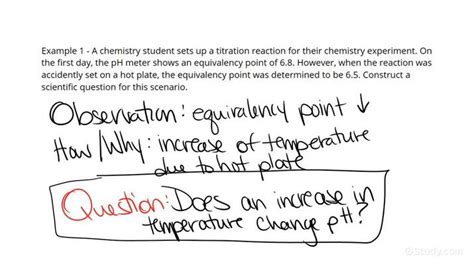 Example 1 - A chemistry student sets up a titration reaction for their chemistry experiment. On
the first day, the pH meter shows an equivalency point of 6.8. However, when the reaction was
accidently set on a hot plate, the equivalency point was determined to be 6.5. Construct a
scientific question for this scenario.
Observation: equivalency point ↓
How/Why: increase of temperature
due to hot plate
Question: Does an increase in
temperature change pH?
Study.com